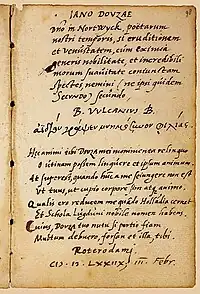 IANO DOVZAE
Dno in Nortwyck, poëtarum
nostri temporis, si eruditionem
et venustatem, cum eximia
generis nobilitate, et incredibili
morum suauitate coniunctam
spectes nemini (ne ipsi quidem
Secundo) secundo,
B. VVLCANIVS B.
φιλίας
Hoc animi tibi Douza mei monimenta relinquo
O utinam possem linquere et ipsum animum.
At superest, quando hinc a me seiungere non est
Vt tuus, ut cupio corpore sim atque animo.
Qualis ero reducem me quando Hollandia cernet
Et Schola Ligduni nobile nomen habens
Cuius, Douza tuo nutu si portio fiam
Multum debuero forsan et illa tibi.
Roterodami
CIↃ. IↃ. LXXIIX. III. Febr.